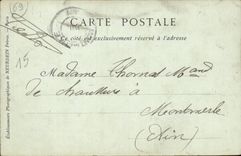 (69)
CARTE POSTALE
Ce côté est exclusivement réservé à l'adresse
15
Madame Thomas Mand
de chaussures à
Montmerle
(Ain)
Etablissements Photographiques de NEURDEIN Frères. — Paris